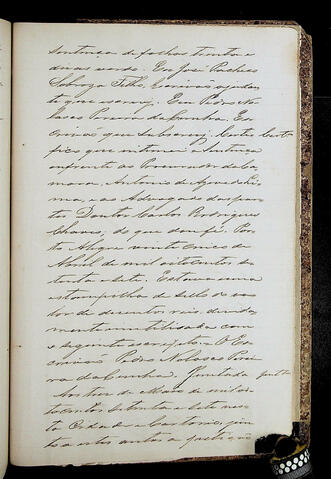 sentença de folhas trinta e
duas verso. Eu José Pacheco
Sobroza Filho, Escrivão ajudan
te que escrevy. Eu Pedro No
lasco Pereira da Cunha, Es-
crivão que subscrevy. Certi
fico que intimei a sentença
ao Procurador da Ca
mara, Antonio de Azevedo Li
ma, e ao Advogado das par
tes Doutor Carlos Rodrigues
Chaves; do que dou fé. Por
to Alegre vinte cinco de
Abril de mil oitocentos se
tenta e sete. Estava uma
estampilha de sello do va
lor de duzentos reis, devida
mente inutilisada com
o seguinte: O Es
crivão Pedro Nolasco Perei
ra da Cunha. Juntada
de Maio de mil oi
tocentos setenta e sete nes
ta Cidade e Cartorio, jun
to a estes autos a petição